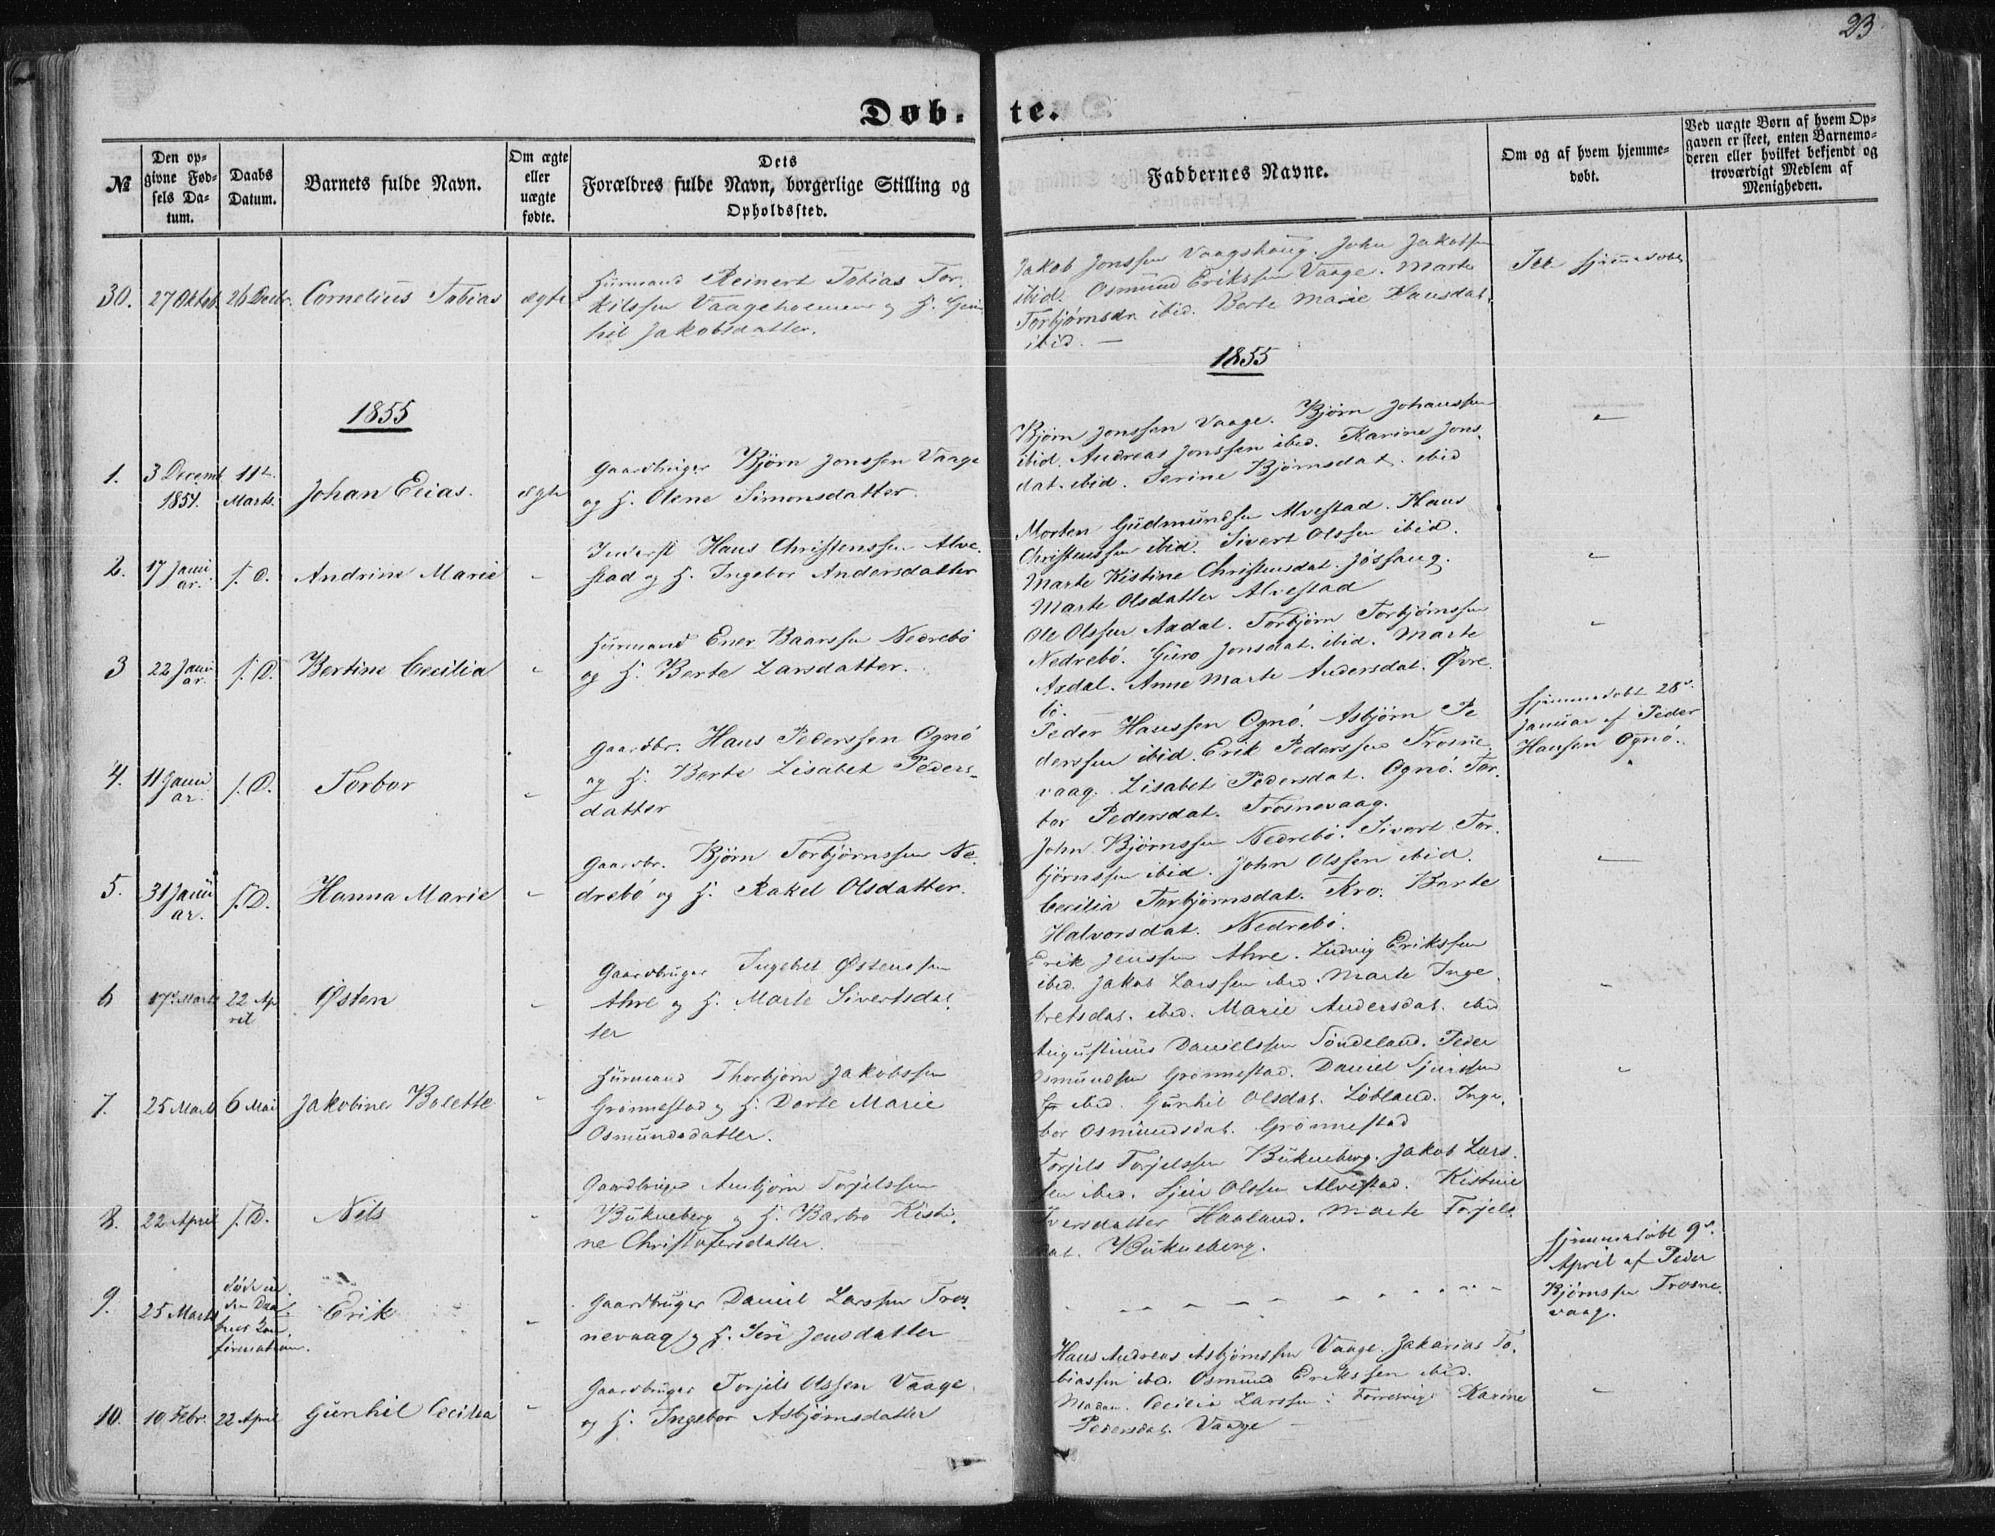 23
Døbte.
№
Den opgivne Fødsels Datum.
Daabs Datum.
Barnets fulde Navn.
Om ægte eller uægte fødte.
Dets Forældres fulde Navn, borgerlige Stilling og Opholdssted.
Faddernes Navne.
Om og af hvem hjemmedøbt.
Ved uægte Børn af hvem Opgaven er skeet, enten Barnemoderen eller hvilket bekjendt og troværdigt Medlem af Menigheden.
30. 27 Oktob. 26 Decbr. Cornelius Tobias ægte
Huusmand Reinert Tobias Tor-
kilssen Vaageholmen og H. Gun
hil Jakobsdatter.
Jakob Jonssen Vaagshaug. John Jakobsen
ibid. Osmund Erikssen Vaage. Marte
Torbjørnsdr ibid. Berte Marie Hansdat.
ibid. —
Ikke hjemmedøbt
1855
1855
1. 3 Decemb. 1854. 11te Marts. Johan Elias. ægte
Gaardbruger Bjørn Jonssen Vaage
og H. Olene Simonsdatter.
Bjørn Jonssen Vaage. Bjørn Johanssen
ibid. Andreas Jonssen ibid. Karine Jons-
dat. ibid. Serine Bjørnsdat. ibid
"
2. 17 Janu ar. s. D. Andrine Marie "
Inderst Hans Christenssen Alve-
stad og H. Ingebor Andersdatter
Morten Gudmundsen Alvestad. Hans
Christenssen ibid. Sivert Olssen ibid.
Marte Kistine Christensdat. Jøsfaug.
Marte Olsdatter Alvestad
"
3 22 Janu ar. s. D. Bertine Cecilia "
Huusmand Ener Baarssen Nedrebø
og H. Berte Larsdatter.
Ole Olssen Axdal. Torbjørn Torbjørnssen
Nedrebø. Guro Jonsdat. ibid. Marte
Axdal. Anne Marte Andersdat. Øvre-
bø. —
"
4. 11 Janu ar. s. D. Torbor "
Gaardbr. Hans Pederssen Ognø
og H. Berte Lisabet Peders-
datter
Peder Hanssen Ognø. Asbjørn Pe
derssen ibid. Erik Pederssen Trosne-
vaag. Lisabet Pedersdat. Ognø. Tor-
bor Pedersdat. Trosnevaag.
hjemmedøbt 28de
Januar af Peder
Hansen Ognø.
5. 31 Janu ar. s. D. Hanna Marie "
Gaardbr. Bjørn Torbjørnssen Ne-
drebø og H. Rakel Olsdatter.
John Bjørnssen Nedrebø. Sivert Tor-
bjørnssen ibid. John Olssen ibid.
Cecilia Torbjørnsdat. Kro. Berte
Halvorsdat. Nedrebø.
"
6 17de Marts 22 Ap ril Østen "
Gaardbruger Ingebret Østenssen
Ahre og H. Marte Sivertsdat
ter
Erik Jenssen Ahre. Ludvig Erikssen
ibid. Jakob Larssen ibid. Marte Inge-
bretsdat. ibid. Marie Andersdat. ibid
"
7. 25 Marts 6 Mai Jakobine Bolette "
Huusmand Thorbjørn Jakobssen
Grønnestad og H. Dorte Marie
Osmundsdatter.
Augustinus Danielssen Søndeland. Peder
Osmundsen Grønnestad. Daniel
ibid. Gunhil Olsdat. Løbland. Inge-
bor Osmundsdat. Grønnestad
"
8. 22 April s. D. Nils "
Gaardbruger Anbjørn Torjelssen
Bukneberg og H. Barbro Kisti-
ne Christofersdatter.
Torjels Torjelssen Bukneberg. Jakob Lars-
sen ibid. Olssen Alvestad. Kistine
Iversdatter Haaland. Marte Torjels-
dat. Bukneberg.
9. 25 Marts Erik "
Gaardbruger Daniel Larssen Tros-
nevaag og H. Siri Jensdatter
hjemmedøbt 9de
April af Peder
Bjørnssen Trosne-
vaag.
10. 10 Febr. 22 April Gunhil Cecilia "
Gaardbruger Torjels Olssen Vaage
og H. Ingebor Asbjørnsdatter
Hans Andreas Asbjørnssen Vaage. Zakarias To-
biassen ibid. Osmund Erikssen ibid.
Madam Cecilia Larssen i Førresvig. Karine
Pedersdat. Vaage —
"